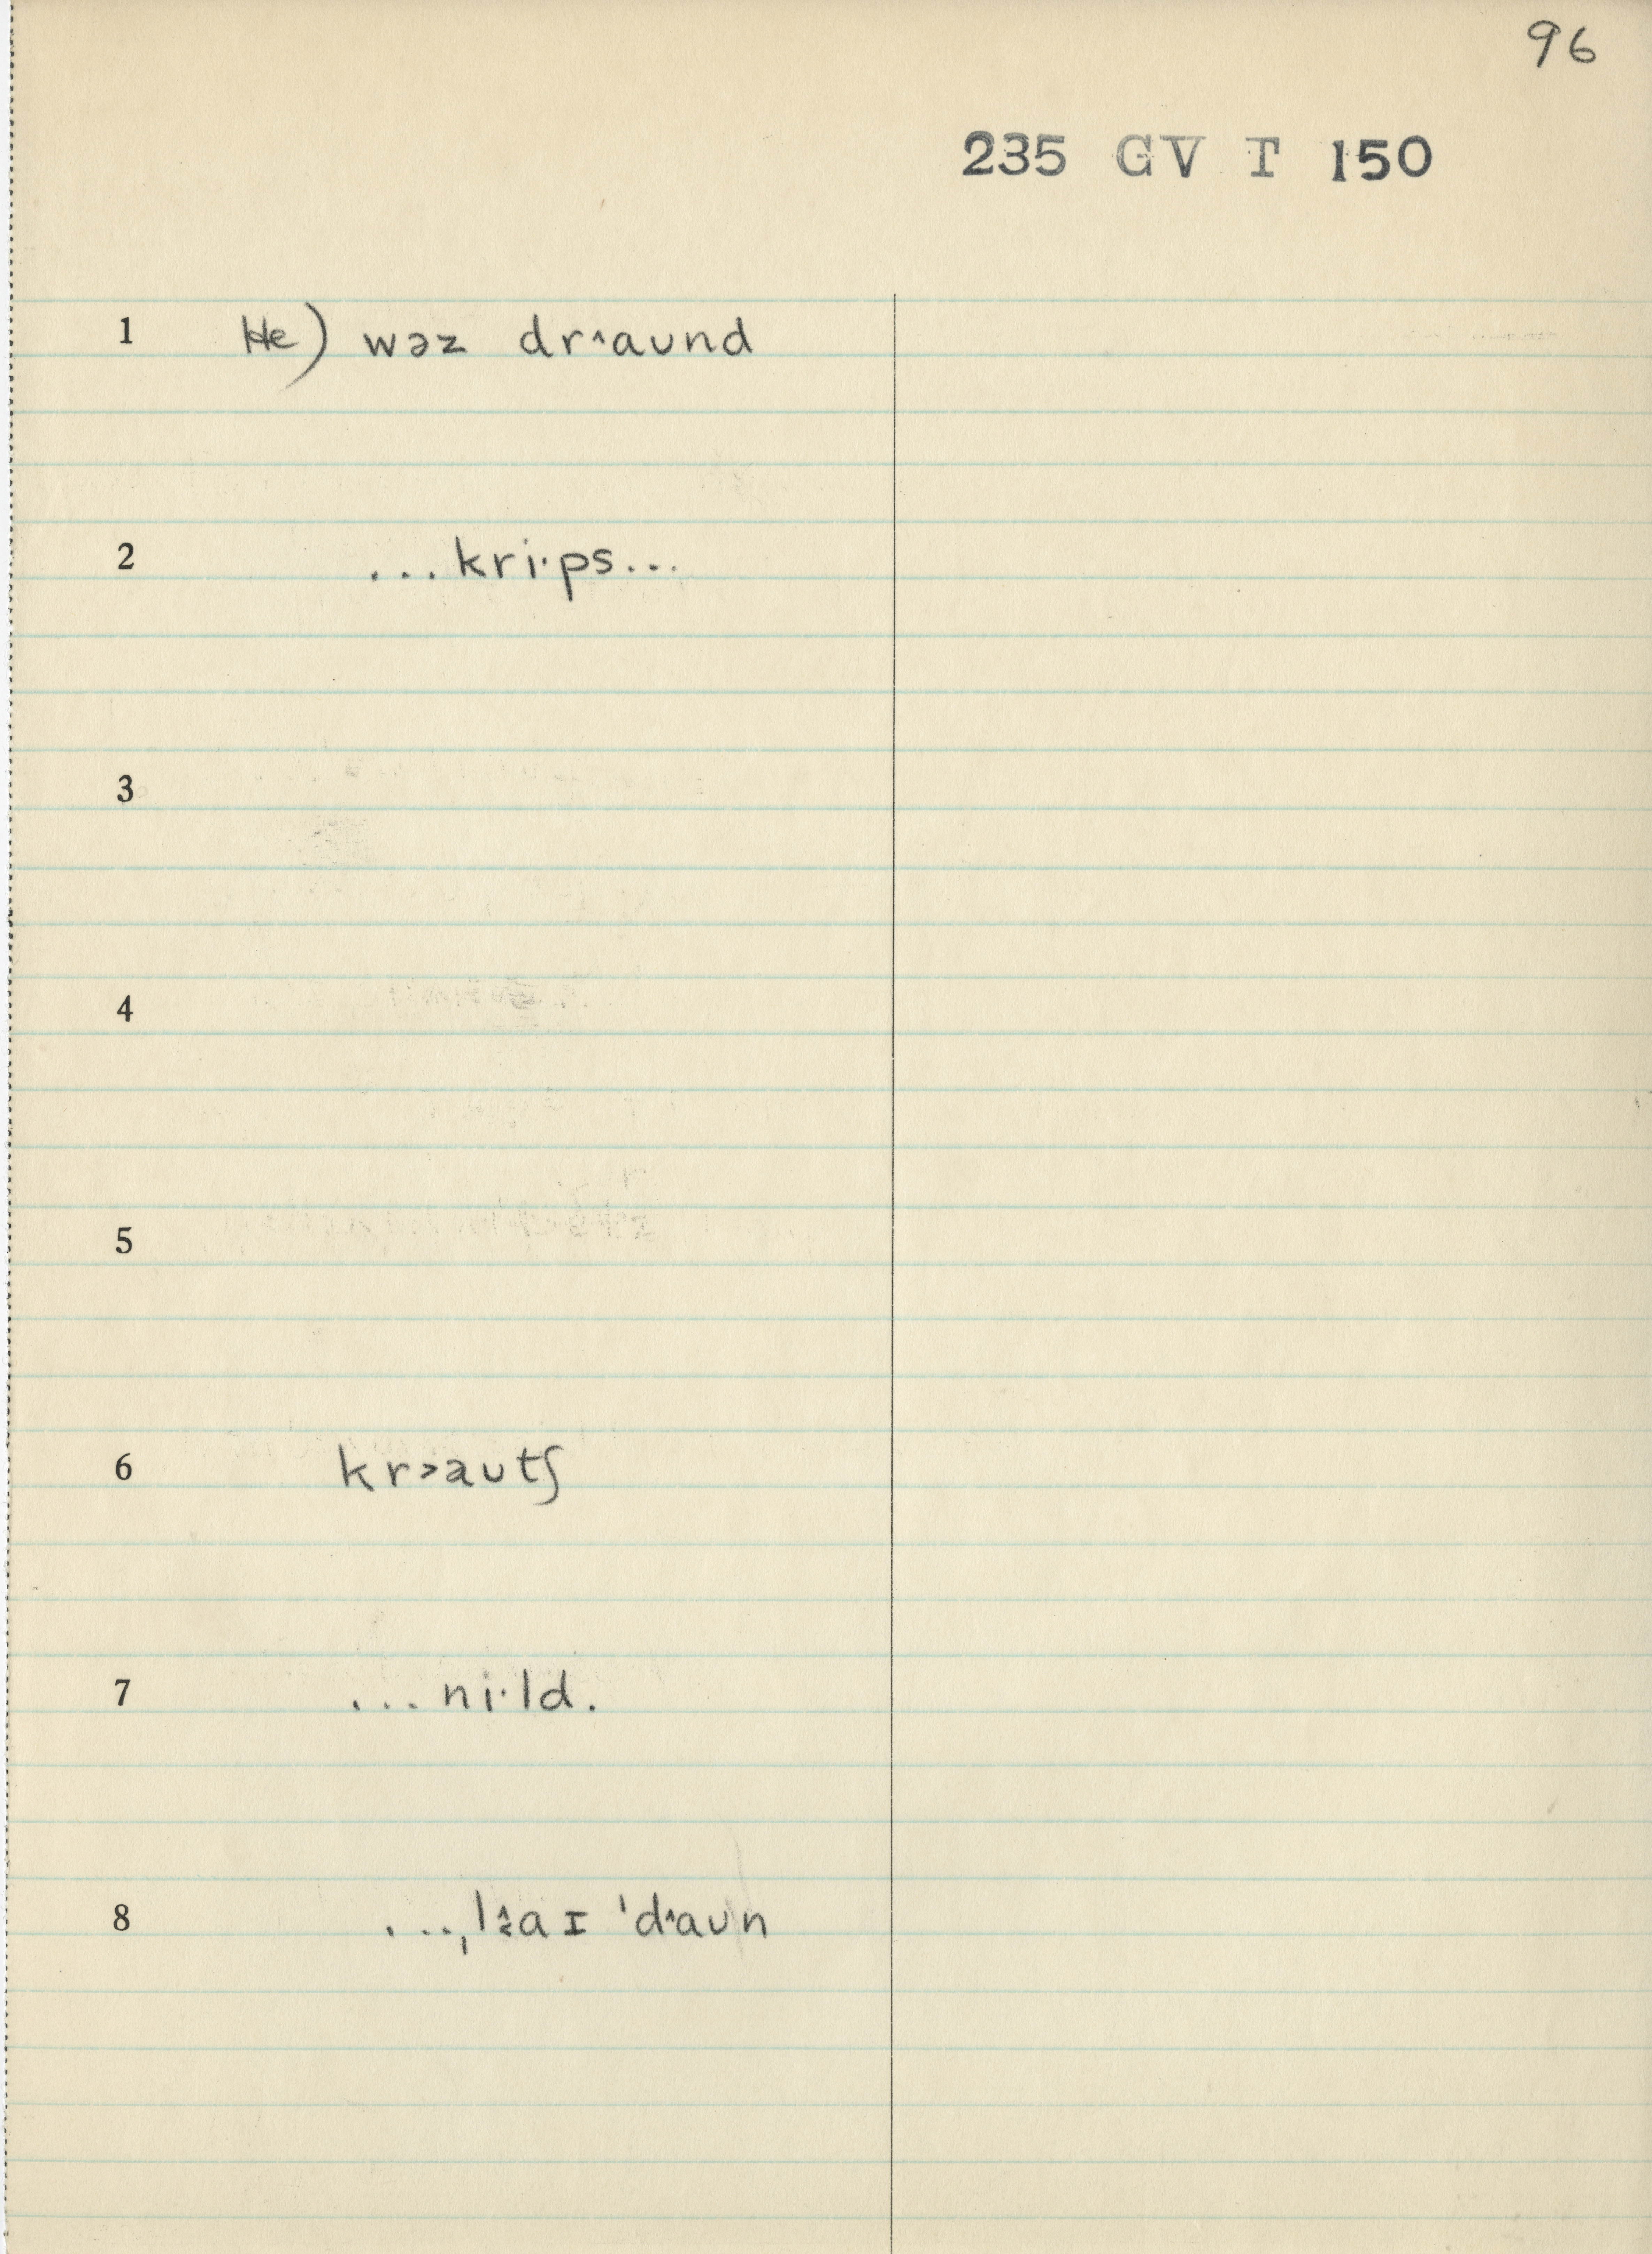 96
235 GV T 150
1 He) wəz drˆaund
2 ...kri·ps...
3
4
5
6 kr˃aʊtʃ
7 ...ni·ld.
8 ...,l aɪ ˈdˆaʊn